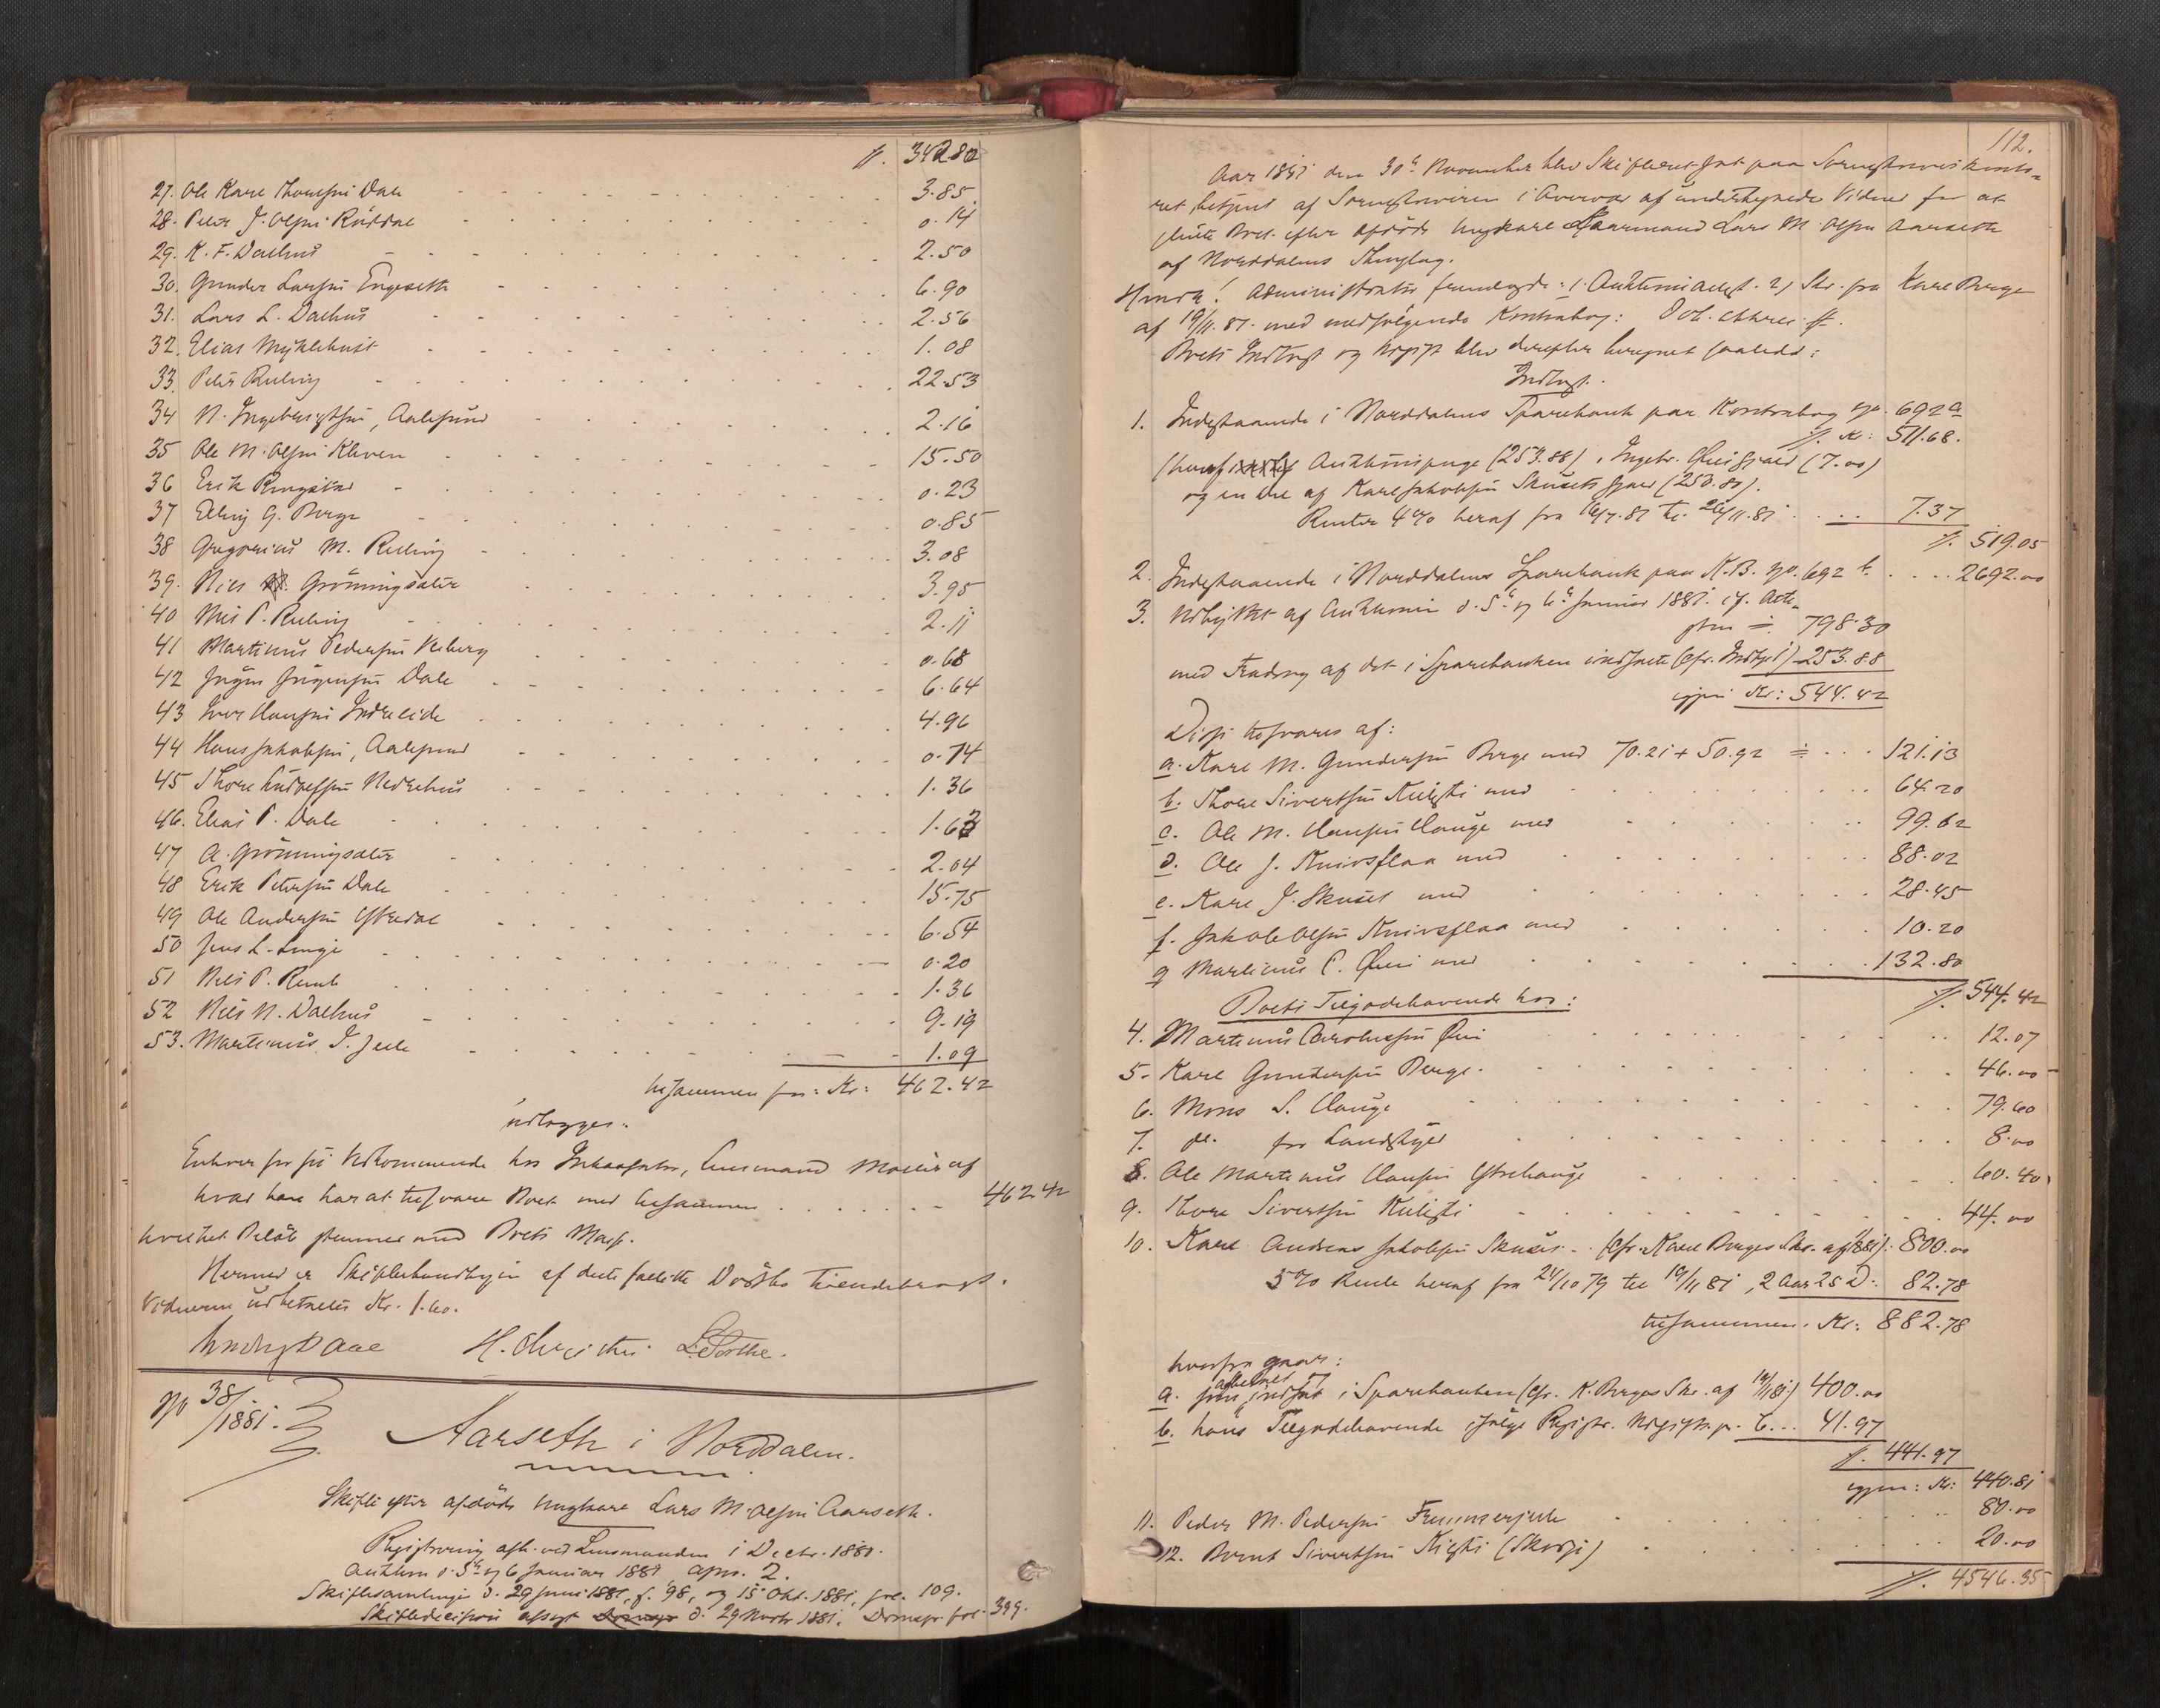 342.80
27. Ole Karl Thomsen Dale 3.85
28. Peter J. Olsen Röddal 0.14
29. K. F. Dalhus 2.50
30. Gunder Larsen Engeseth 6.90
31. Lars L. Dalhus 2.56
32. Elias Myklebust 1.08
33. Peter Reling 22.53
34 N. Ingebrigtsen, Aalesund 2.16
35 Ole M. Olsen Kleven 15.50
36 Erik Ringstad 0.23
37 G. Berge 0.85
38 Gregorius M. Reling 3.08
39. Nils Grönningsæter 3.95
40 Nils P. Reling 2.11
41 Martinus Pedersen 0.68
42 Jörgen Jörgensen Dale 6.64
43 Iver Hansen Indreeide 4.96
44 Hans Jakobsen, Aalesund 0.74
45 Thore Nedrehus 1.36
46. Elias P. Dale 1.63
47 A. Grönningsæter 2.04
48 Erik Petersen Dale 15.75
49 Ole Andersen Ytredal 6.54
50 Jens L. Linge 0.20
51 Nils P. 1.36
52 Nils N. Dalhus 9.19
53. Martinus I. 1.09
tilsammen Kr: 462.42
udlægges:
Enhver for sit Vedkommende hos Lensmand af
hvad han har at tilsvare Boet med tilsammen 462.42
hvilket Belöb stemmer med Boets Masse.
Hermed er Skiftebehandlingen af dette fælleds Dödsbo tilendebragt.
Vidnerne udbetaltes Kr. 1.60.
Aae H. Christie
No 38/1881.
Aarseth i Norddalen.
Skifte efter afdöde Ungkarl Lars M. Olsen Aarseth.
Registrering afh. ved Lensmanden i Decbr. 1880.
Auktion d. 5te og 6 Januar 1881
Skiftesamlinger d. 29 Juni 1881, f. 98, og 15 Okt. 1881, fol. 109.
Skiftedecision afsagt d. 29 Novbr 1881. fol. 399.
112.
Aar 1881 den 30te November blev Skifteret sat paa Sorenskriverkonto-
ret betjent af Sorenskriveren i Overvær af undertegnede Vidner for at
slutte Boet efter afdöde Ungkarl Lars M. Olsen Aarseth
af Norddalens Thinglag.
Administrator fremlagde: 1, 2, Skr. fra Karl Berge
af 19/11.81. med medfölgende Kontrabog:
Boets Indtægt og Udgift blev derefter beregnet saaledes:
Indtægt.
1. Indestaaende i Norddalens Sparebank paa Kontrabog No. 692 a
Kr: 511.68.
Auktionspenge (253.88), Ingebr. Gjæld (7.00)
og en Del af Karl Jakobsen Gjæld (250.80).
Renter 4% heraf fra 16/7.81 til 26/11.81 7.37
519.05
2. Indestaaende i Norddalens Sparebank paa K.B. No. 692 b. 2692.00
3. Udbyttet af Auktionen d. 5te og 6te Januar 1881.
798.30
med Fradrag af det i Sparebanken indsatte (cfr. Indtgt 1) 253.88
igjen Kr: 544.42
Disse tilsvares af:
a. Karl M. Gundersen Berge med 70.21 + 50.92 = 121.13
b. Thore Sivertsen med 64.20
c. Ole M. Hansen Hauge med 99.62
d. Ole J. Knivsflaa med 88.02
e. Karl J. med 28.45
f. Jakob Olsen Knivsflaa med 10.20
g Martinus C. Öen med 132.80
544.42
Boets Tilgodehavende hos:
4. Martinus Carolussen Öen 12.07
5. Karl Gundersen Berge. 46.00
6. Mons S. Hauge 79.60
7. do. for Landskyld 8.00
8. Ole Martinus Hansen Ytrehauge 60.40
9. Thore Sivertsen 44.00
10. Karl Andreas Jakobsen (cfr. Karl Berges Skr. af 1881): 800.00
5% Rente heraf fra 24/10 79 til 19/11 81, 2 Aar 25 D: 82.78
tilsammen. Kr: 882.78
hvorfra gaar:
a. indsat i Sparebanken (cfr. K. Berges Skr. af 19/11 81) 400.00
b. hans Tilgodehavende ifölge Registr. 41.97
441.97
igjen: Kr: 440.81
11. Peder M. Pedersen 80.00
12. Bernt Sivertsen 20.00
4546.35